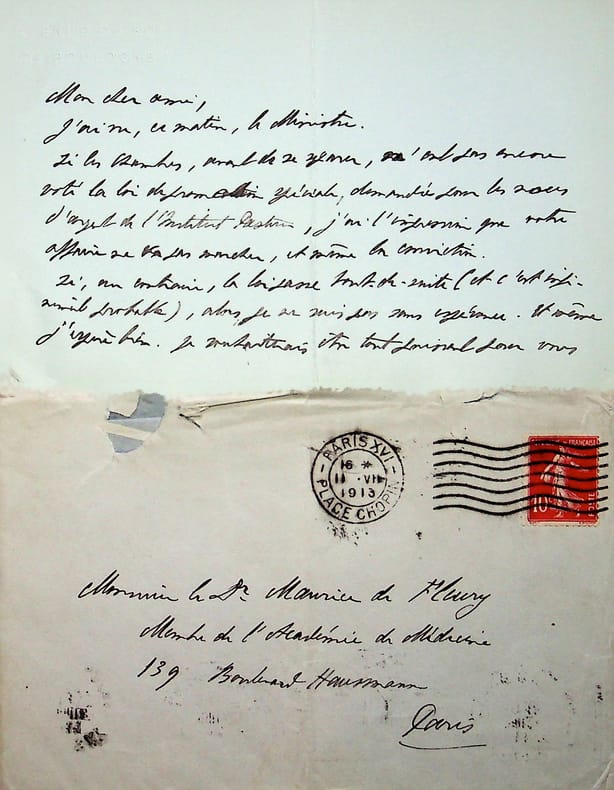 Mon cher ami,
J'ai vu, ce matin, le Ministre.
Si les Chambres, avant de se séparer, n'ont pas encore
voté la loi de promotion spéciale, demandée pour les noces
d'argent de l'Institut Pasteur, j'ai l'impression que votre
affaire ne va pas marcher, et même la conviction.
Si, au contraire, la loi passe tout-de-suite (et c'est infi-
niment probable), alors je ne suis pas sans espérance. Et même
j'espère bien. Je souhaiterais être tout puissant pour vous
PARIS XVI
16 *
11 - VII
1913
PLACE CHOPIN
FRANÇAISE
10
POSTE
Monsieur le Dr. Maurice de Fleury
Membre de l'Académie de Médecine
139 Boulevard Haussmann
Paris